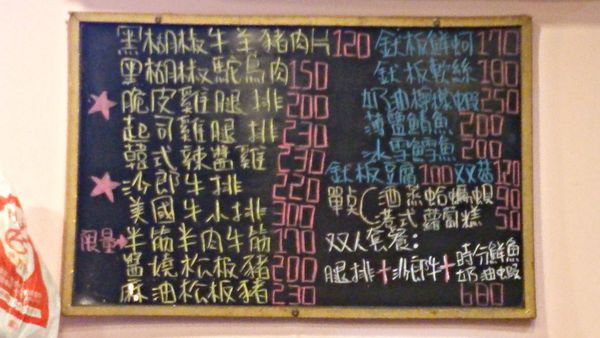 黑胡椒牛羊豬肉片120
黑胡椒鴕鳥肉150
脆皮雞腿排200
起司雞腿排230
韓式辣醬雞230
沙郎牛排220
美國牛小排300
限量→半筋半肉牛筋170
醬燒松板豬200
麻油松板豬230
鈦板鮮蚵170
鈦板軟絲180
奶油檸檬蝦250
薄鹽鯖魚200
冰雪鱈魚200
鈦板豆腐100双菇120
單點(酒蒸蛤蠣90
港式蘿蔔糕50
双人套餐:
腿排+沙郎牛+時价鮮魚
奶油蝦
680